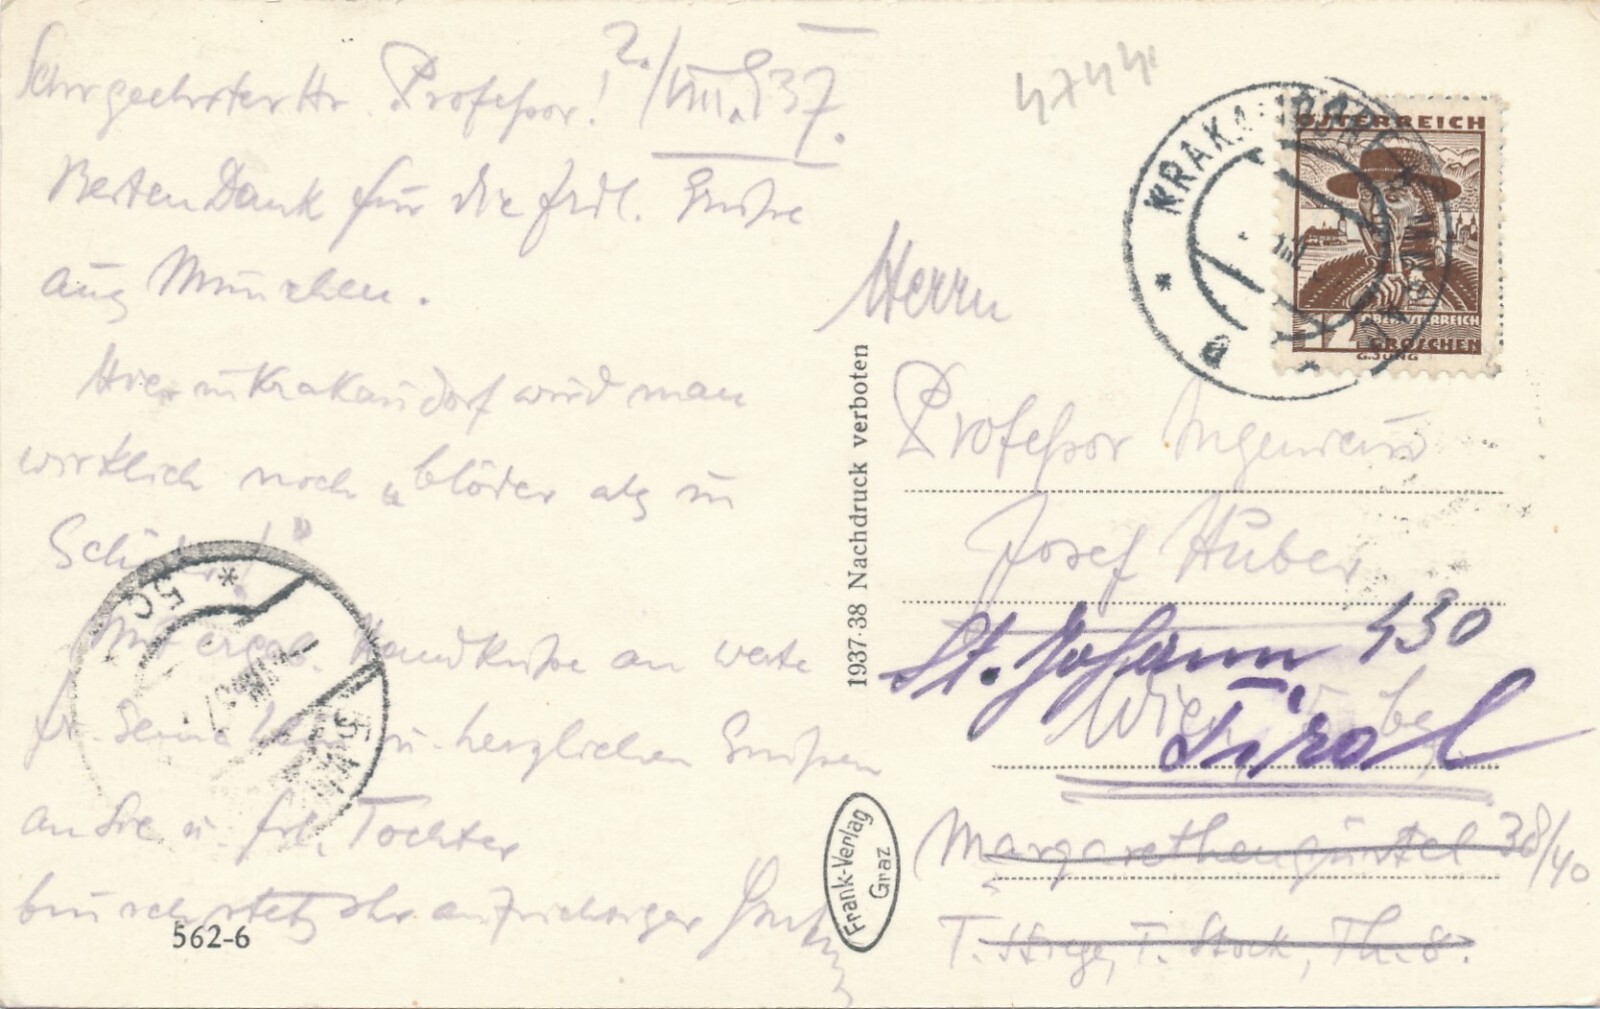 2./VIII.937.
Sehrgeehrter Hr. Professor!
Besten Dank für die frdl. Grüße
aus München.
Hier in Krakaudorf wird man
wirklich noch „blöder als in
Mit ergeb. Handküsse an werte
Fr. Gemahlin u. herzlichen Grüßen
an Sie u. Frl. Tochter
bin ich stets Ihr aufrichtiger
562-6
1937-38 Nachdruck verboten
Frank-Verlag
Graz
4744
KRAKAUDORF
ÖSTERREICH
OBERÖSTERREICH
GROSCHEN
G.JUNG
Herrn
Professor Ingenieur
Josef Huber
St. Johann 430
Wien
Tirol
Margarethengürtel 38/40
T. Stiege, T. Stock, Th. 8.